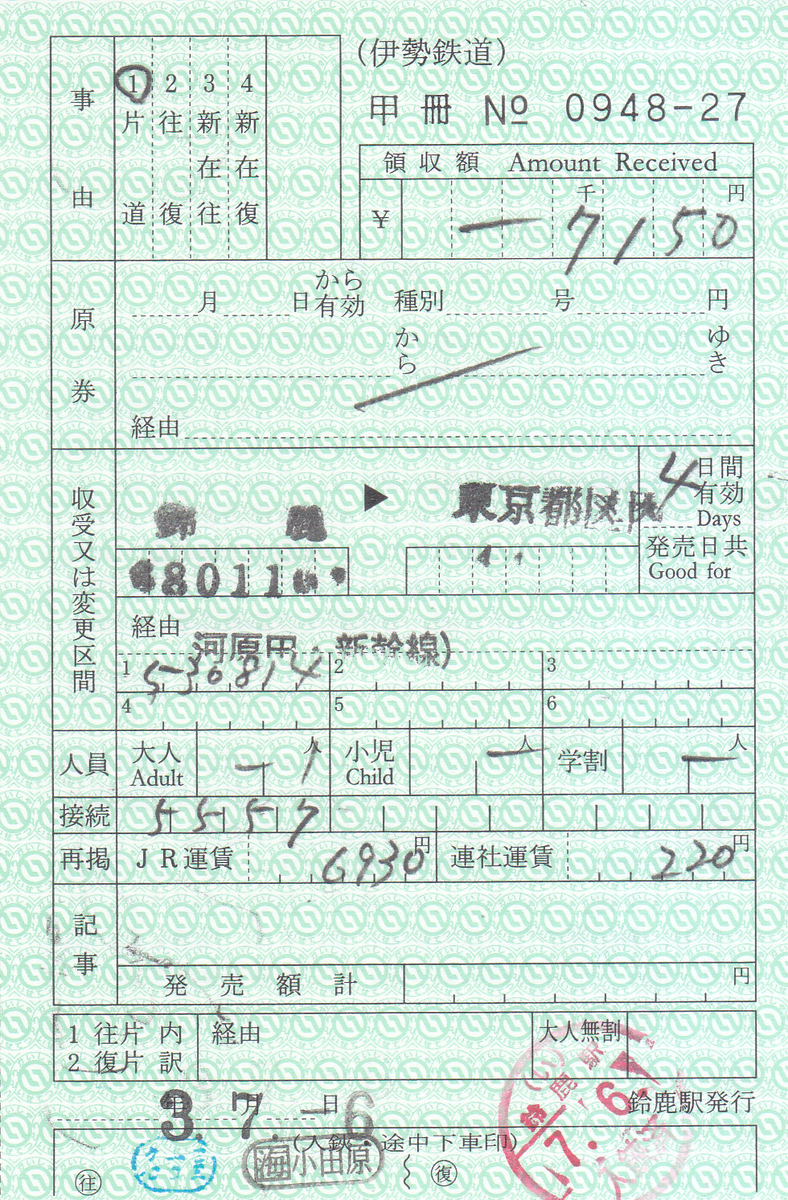 (伊勢鉄道)
甲冊 № 0948-27
事由
1 片道
2 往復
3 新在往
4 新在復
領収額 Amount Received
¥ 千 円
-7150
原券
月 日 から有効 種別 号 円
から ゆき
経由
収受又は変更区間
鈴鹿 ▶ 東京都区内
4 日間有効 Days
発売日共 Good for
経由 河原田・新幹線)
1 5-30814 2 3
4 5 6
人員 大人 Adult -1人 小児 Child -人 学割 -人
接続 5557
再掲 JR運賃 6930円 連社運賃 220円
記事
発売額計 円
1 往片 内
2 復片 訳
経由
大人無割
3. 7. -6
年 月 日
鈴鹿駅発行
(入鋏・途中下車印)
往 海 小田原 復
鈴鹿駅
7. 6